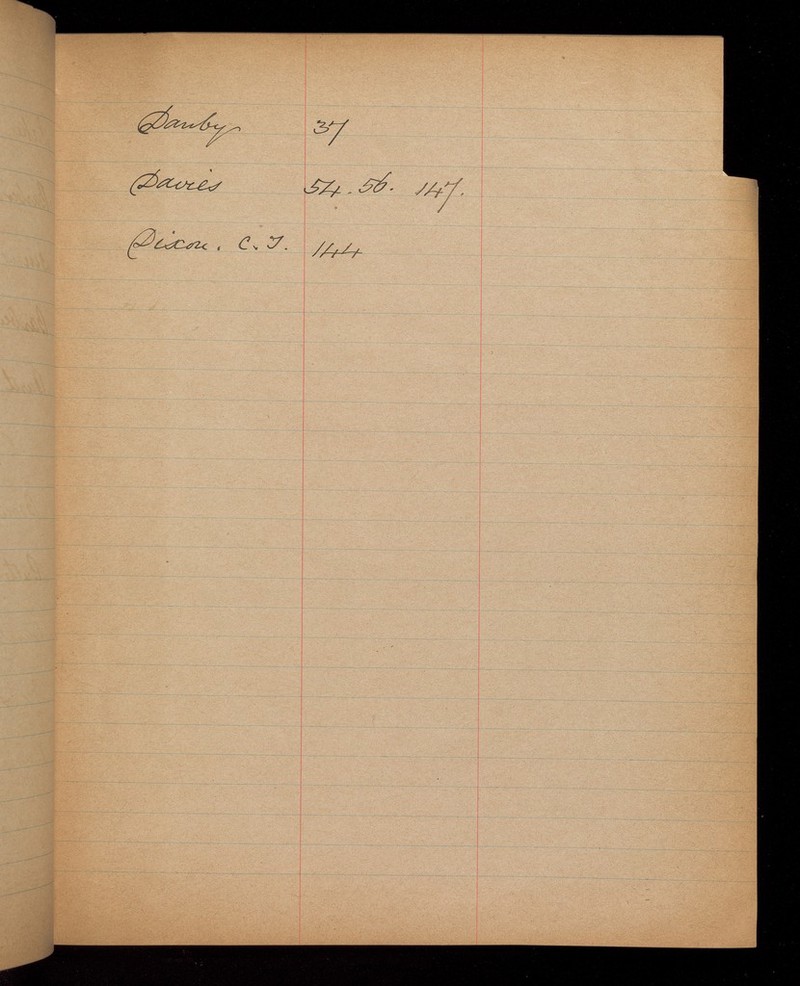 Danby 37
Davies 54. 56. 147.
Dixon. C. T. 144